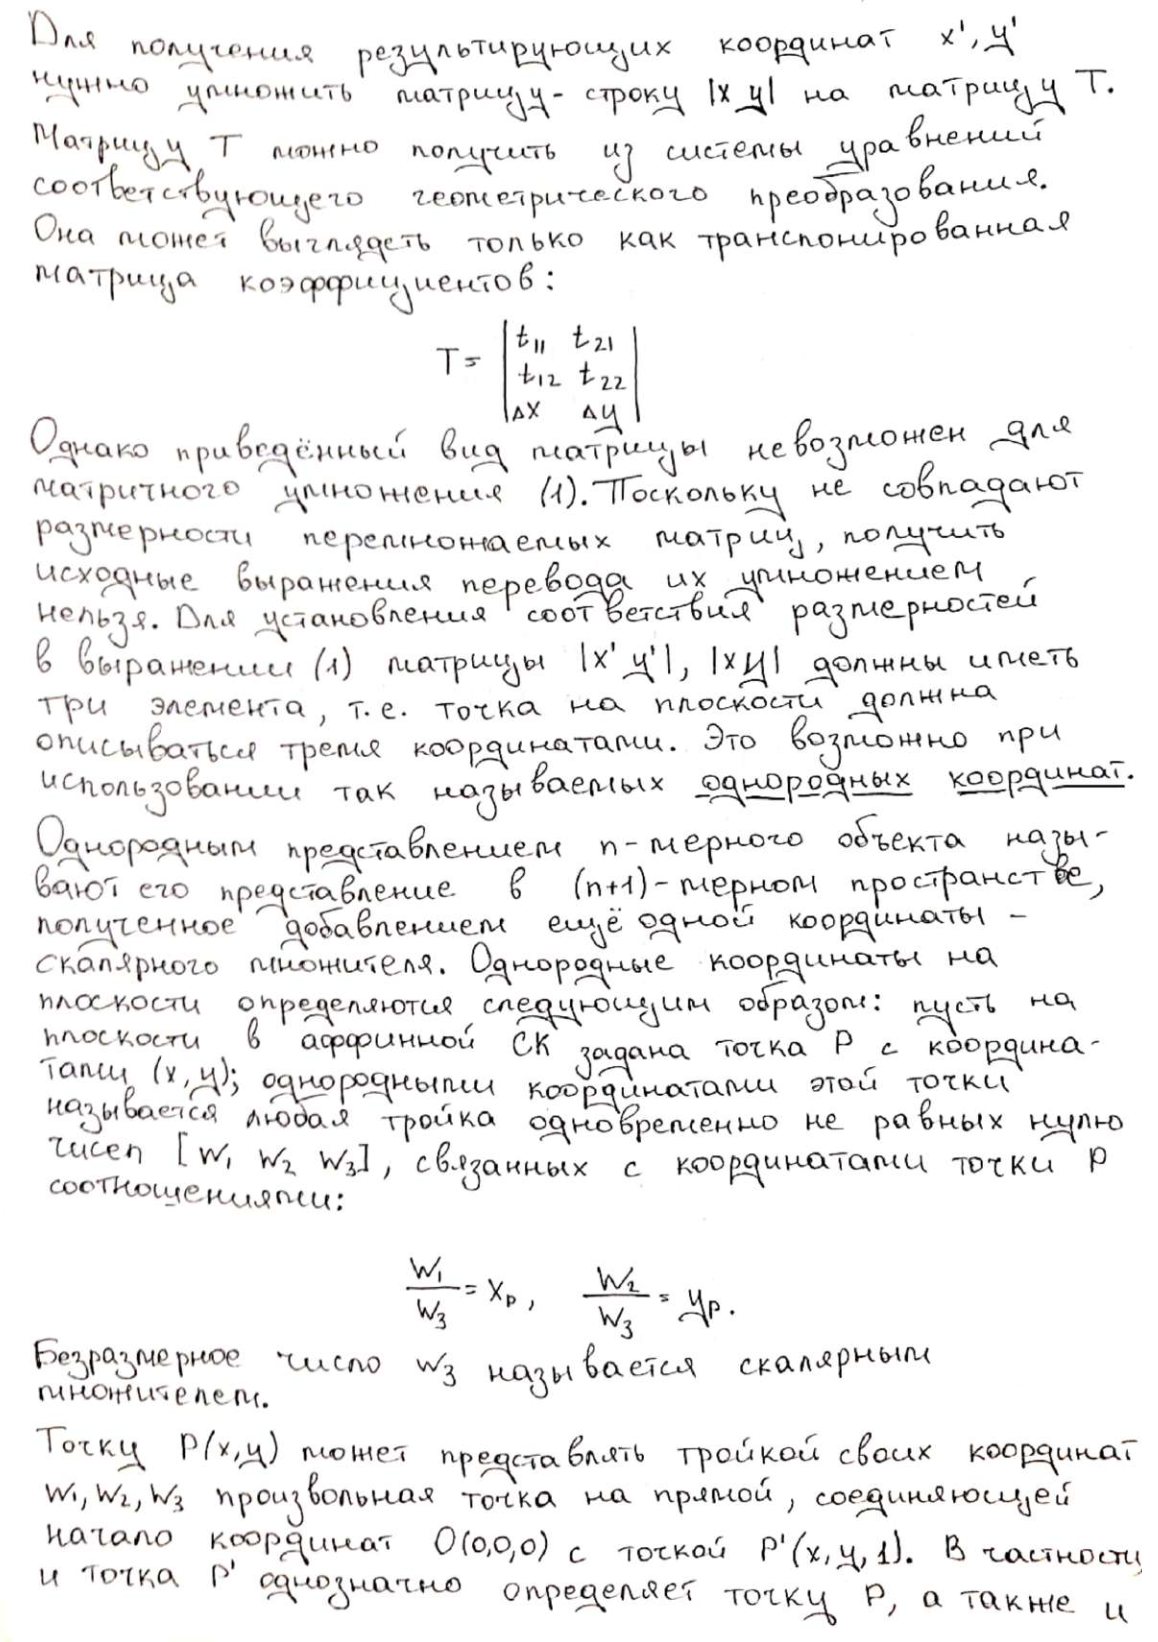 Для получения результирующих координат x', y'
нужно умножить матрицу-строку |x y| на матрицу T.
Матрицу T можно получить из системы уравнений
соответствующего геометрического преобразования.
Она может выглядеть только как транспонированная
матрица коэффициентов:
T = | t11 t21 |
| t12 t22 |
| Δx Δy |
Однако приведённый вид матрицы невозможен для
матричного умножения (1). Поскольку не совпадают
размерности перемножаемых матриц, получить
исходные выражения перевода их умножением
нельзя. Для установления соответствия размерностей
в выражении (1) матрицы |x' y'|, |x y| должны иметь
три элемента, т.е. точка на плоскости должна
описываться тремя координатами. Это возможно при
использовании так называемых однородных координат.
Однородным представлением n-мерного объекта назы-
вают его представление в (n+1)-мерном пространстве,
полученное добавлением ещё одной координаты –
скалярного множителя. Однородные координаты на
плоскости определяются следующим образом: пусть на
плоскости в аффинной СК задана точка P с координа-
тами (x, y); однородными координатами этой точки
называется любая тройка одновременно не равных нулю
чисел [w1 w2 w3], связанных с координатами точки P
соотношениями:
w1/w3 = xp, w2/w3 = yp.
Безразмерное число w3 называется скалярным
множителем.
Точку P(x,y) может представлять тройкой своих координат
w1, w2, w3 произвольная точка на прямой, соединяющей
начало координат O(0,0,0) с точкой P'(x, y, 1). В частности,
и точка P' однозначно определяет точку P, а также и